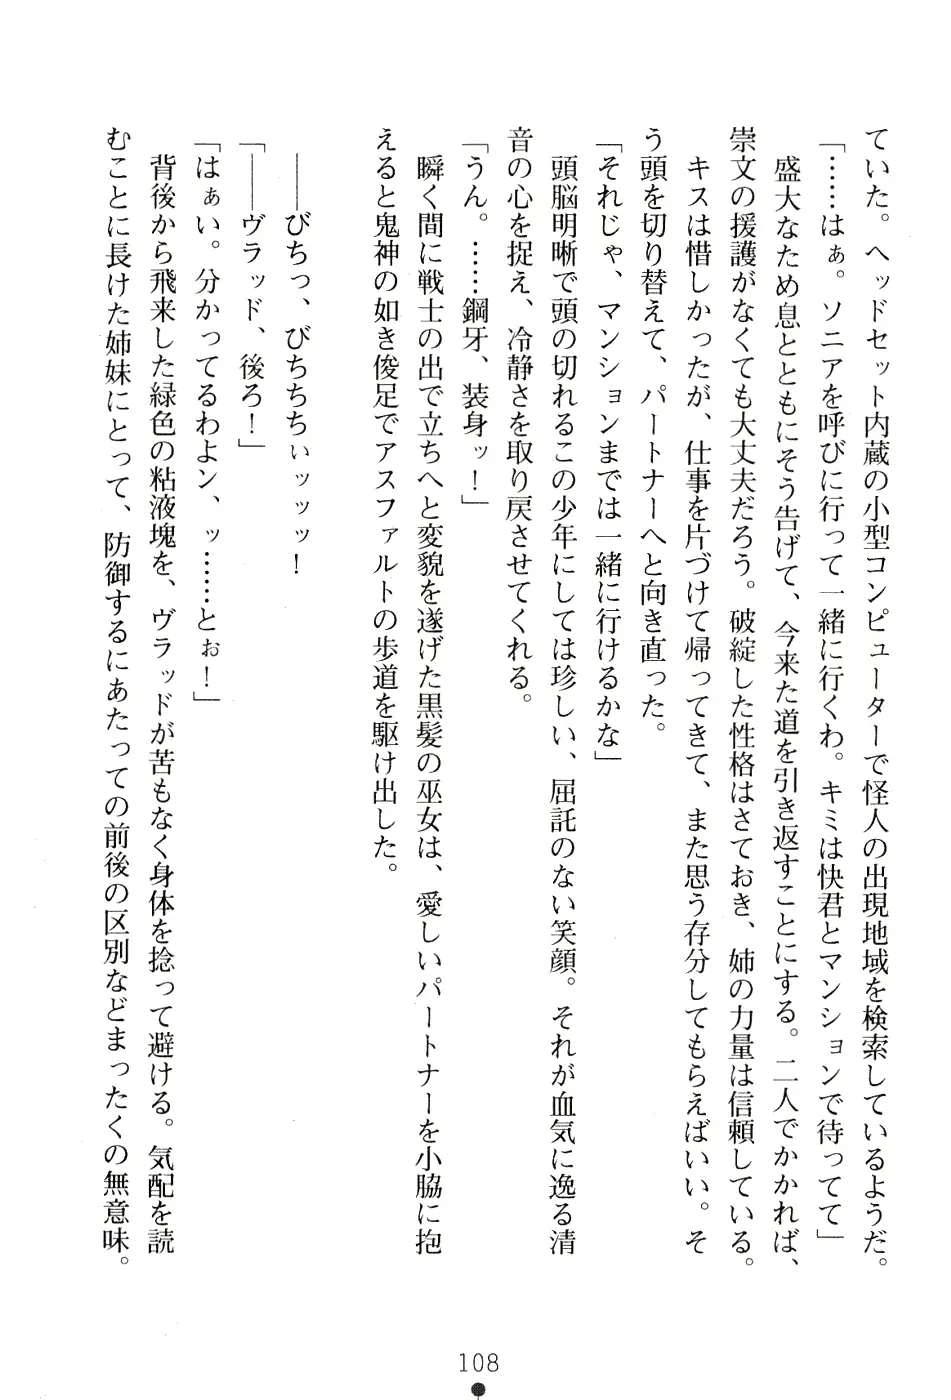 ていた。ヘッドセット内蔵の小型コンピューターで怪人の出現地域を検索しているようだ。
「……はぁ。ソニアを呼びに行って一緒に行くわ。キミは快君とマンションで待ってて」
　盛大なため息とともにそう告げて、今来た道を引き返すことにする。二人でかかれば、
崇文の援護がなくても大丈夫だろう。破綻した性格はさておき、姉の力量は信頼している。
　キスは惜しかったが、仕事を片づけて帰ってきて、また思う存分してもらえばいい。そ
う頭を切り替えて、パートナーへと向き直った。
「それじゃ、マンションまでは一緒に行けるかな」
　頭脳明晰で頭の切れるこの少年にしては珍しい、屈託のない笑顔。それが血気に逸る清
音の心を捉え、冷静さを取り戻させてくれる。
「うん。……鋼牙、装身ッ！」
　瞬く間に戦士の出で立ちへと変貌を遂げた黒髪の巫女は、愛しいパートナーを小脇に抱
えると鬼神の如き俊足でアスファルトの歩道を駆け出した。
　――びちっ、びちちちぃッッッ！
「――ヴラッド、後ろ！」
「はぁい。分かってるわよン、ッ……とぉ！」
　背後から飛来した緑色の粘液塊を、ヴラッドが苦もなく身体を捻って避ける。気配を読
むことに長けた姉妹にとって、防御するにあたっての前後の区別などまったくの無意味。
108